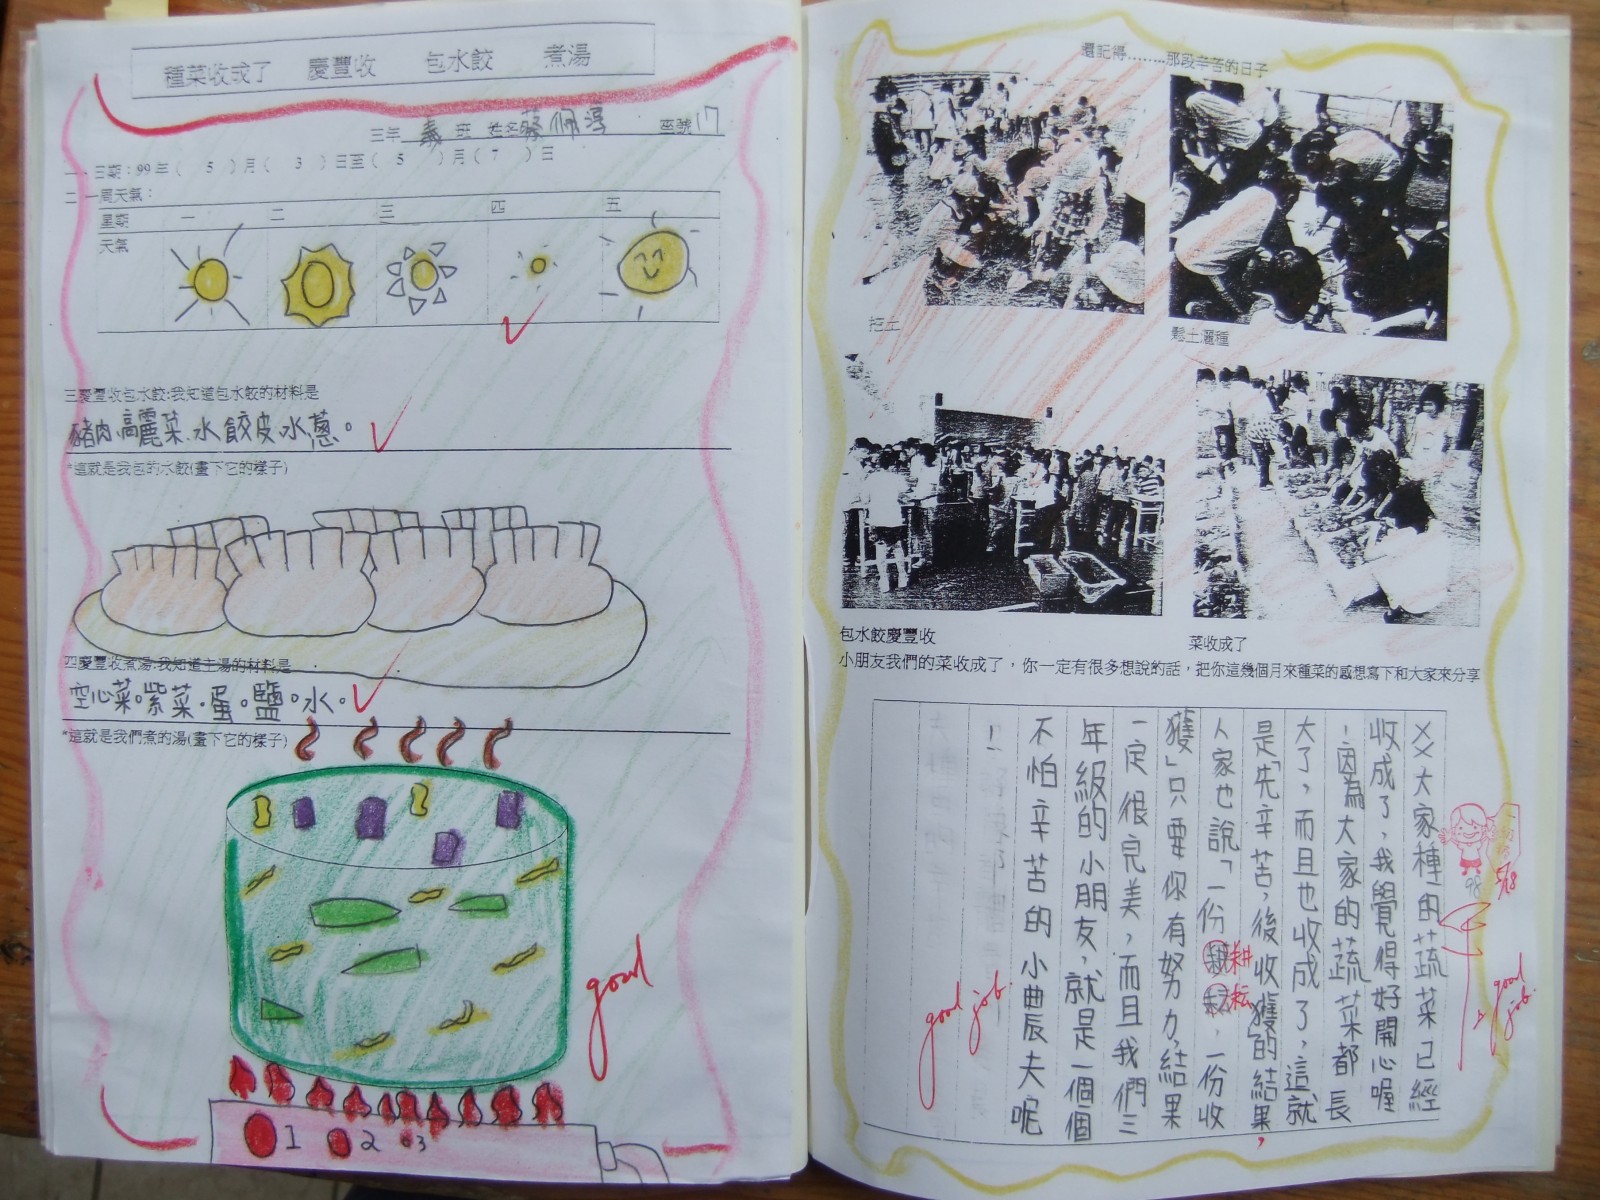 種菜收成了 慶豐收 包水餃 煮湯
三年 義 班 姓名 座號 17
一、日期：99年（ 5 ）月（ 3 ）日至（ 5 ）月（ 7 ）日
二 一周天氣：
星期 一 二 三 四 五
天氣
三慶豐收包水餃:我知道包水餃的材料是
豬肉、高麗菜、水餃皮、水、蔥。
*這就是我包的水餃(畫下它的樣子)
四慶豐收煮湯:我知道主湯的材料是
空心菜。紫菜。蛋。鹽。水。
*這就是我們煮的湯(畫下它的樣子)
good
1 2 3
還記得………那段辛苦的日子
鬆土灑種
包水餃慶豐收
菜收成了
小朋友我們的菜收成了，你一定有很多想說的話，把你這幾個月來種菜的感想寫下和大家來分享
大家種的蔬菜已經
收成了，我覺得好開心喔
！因為大家的蔬菜都長
大了，而且也收成了，這就
是「先辛苦，後收獲」的結果，
人家也說「一份耕耘，一份收
獲」只要你有努力，結果
一定很完美，而且我們三
年級的小朋友，就是一個個
不怕辛苦的小農夫呢
！
good job.
98
5/18
good job.